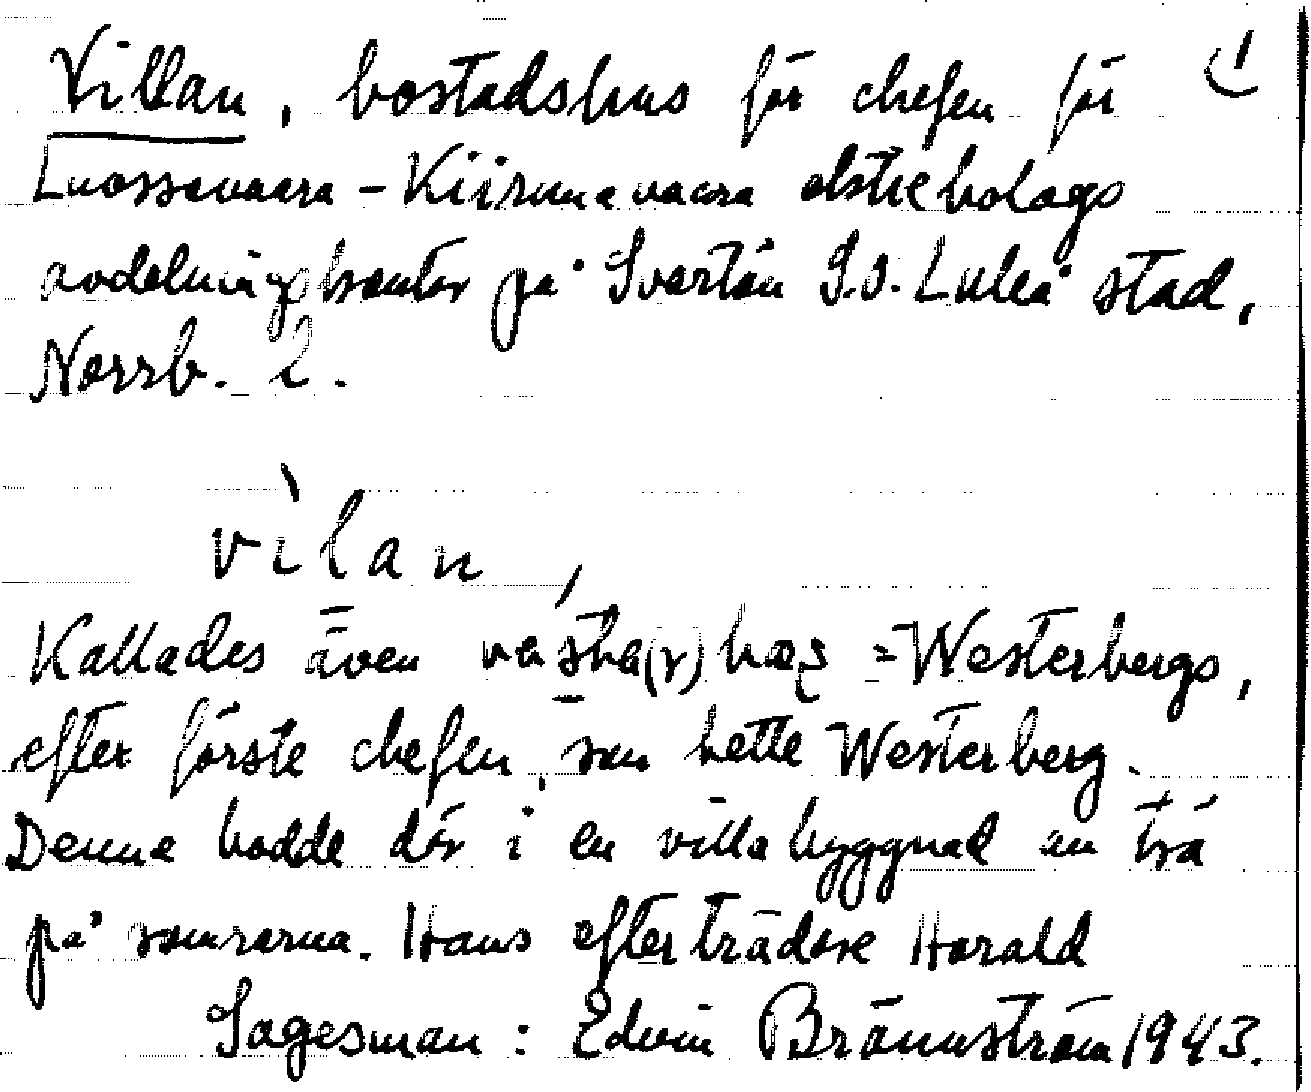 Villan, bostadshus för chefen för 1)
Luossavaara-Kiirunavaara aktiebolags
avdelningskontor på Svartön S.O. Luleå stad,
Norrb. l.
vilan,
Kallades även =Westerbergs,
efter förste chefen, som hette Westerberg.
Denne bodde där i en villabyggnad av trä
på somrarna. Hans efterträdare Harald
Sagesman: Edvin Brännström 1943.